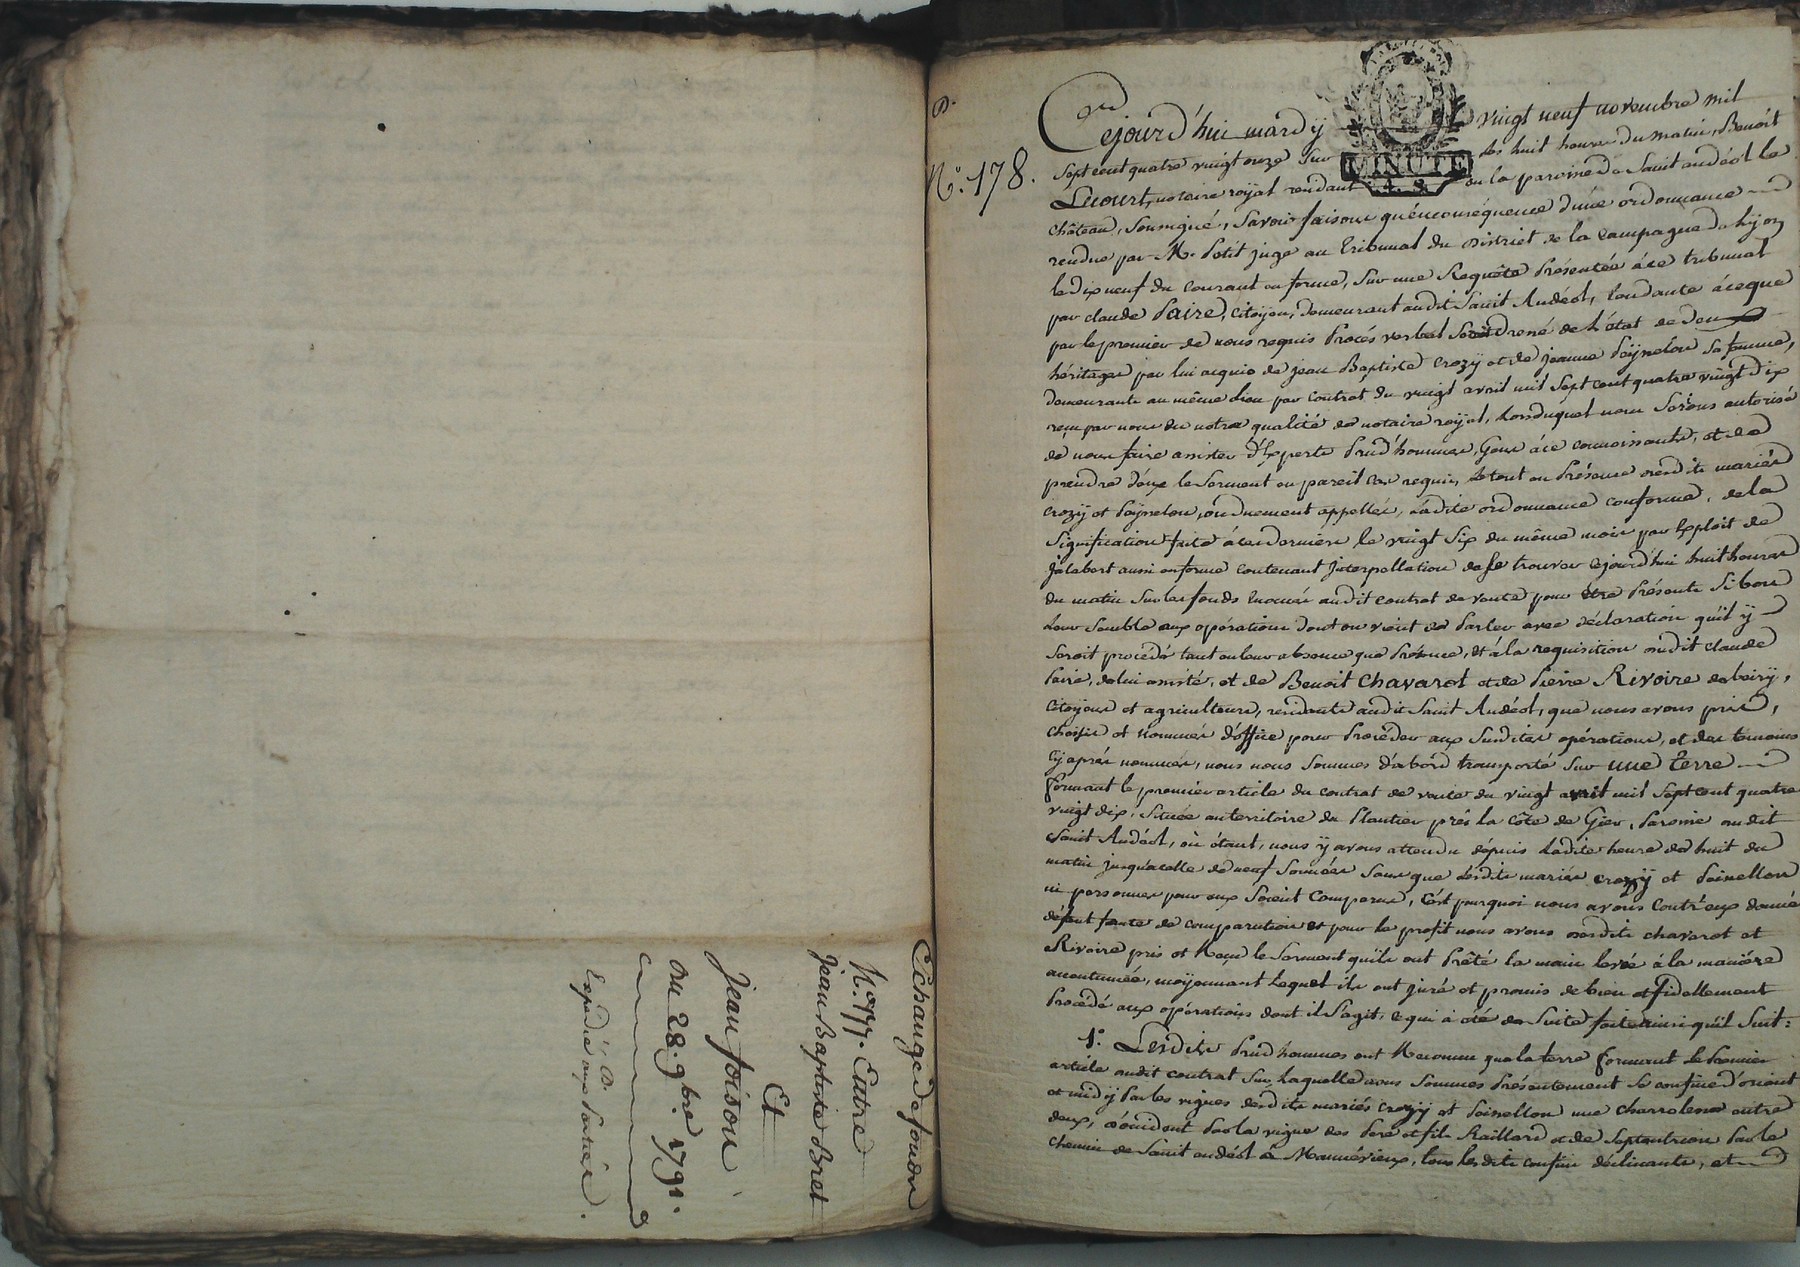 Echange de fondz
N.° 177. Entre
Jean Baptiste Bret
Et
Jean foison
du 28. 9bre 1791.
Expédié aux Parties.
D.
N.° 178.
Cejourd'hui mardy vingt neuf novembre mil
sept cent quatre vingt onze sur les huit heures du matin, Benoît
Lecourt, notaire royal résidant en la paroisse de Saint andéol le
château, soussigné, savoir faisons qu'enconséquence d'une ordonnance
rendue par M. Petit juge au tribunal du District de la campagne de Lyon
le dix neuf du courant en forme, sur une Requête Présentée à ce tribunal
par claude Paire, citoyen, demeurant audit Saint Andéol, tendante à ceque
par le premier de nous requis Procés verbal soit dressé de l'état de deux
héritages par lui acquis de jean Baptiste crozÿ et de jeanne Poÿnelon sa femme,
demeurants au même lieu par contrat du vingt avril mil sept cent quatre vingt dix
reçu par nous en notre qualité de notaire royal, lors duquel nous serions autorisé
de nous faire assister d'Experts Prud'hommes, Gens à ce connoissants, et de
prendre d'eux le serment en pareil cas requis, le tout en Présence desdits mariés
crozÿ et Poÿnelon, ou duement appellés, ladite ordonnance conforme, de la
signification faite à ces derniers le vingt six du même mois par Exploit de
jalabert aussi en forme contenant jnterpellation de se trouver cejourd'hui huit heures
du matin sur les fonds Enoncés audit contrat de vente pour être Présents si bon
leur semble aux opérations dont on vient de Parler avec déclaration qu'il ÿ
seroit procédé tant en leur absence que Présence, Et à la requisition dudit claude
Paire, de lui assisté, et de Benoit Chavarot et de Pierre Rivoire
citoyens et agriculteurs, residants audit Saint Andéol, que nous avons pris,
choisis et nommés d'office pour Procéder aux susdites opérations, et des témoins
cÿ après nommés, nous nous sommes d'abord transporté sur une terre
formant le premier article du contrat de vente du vingt avril mil sept cent quatre
vingt dix, située au territoire du Plantier près la côte de Gier, Paroisse audit
Saint Andéol, où étant, nous ÿ avons attendu dépuis ladite heure de huit du
matin jusqu'à celle de neuf sonnées sans que lesdits mariés crozÿ et Poinellon
ni personnes pour eux soient comparus, c'est pourquoi nous avons contr'eux donné
défaut faute de comparution et pour le profit nous avons desdits chavarot et
Rivoire pris et Reçu le serment qu'ils ont Prêté la main levée à la manière
accoutumée, moÿennant lequel ils ont juré et promis de bien et fidellement
Procédé aux opérations dont il s'agit, ce qui à été de suite fait ainsi qu'il suit:
1.° Lesdits Prud'hommes ont Reconnu que la terre formant le Premier
article audit contrat sur laquelle nous sommes Présentement se confine d'orient
et midÿ Par les vignes desdits mariés crozÿ et Poinellon une charrolerie entre
deux, d'occident Par la vigne des Pere et fils Raillard et de septentrion Par le
chemin de Saint andéol à Mannévieux, tous lesdits confins déclinants, et